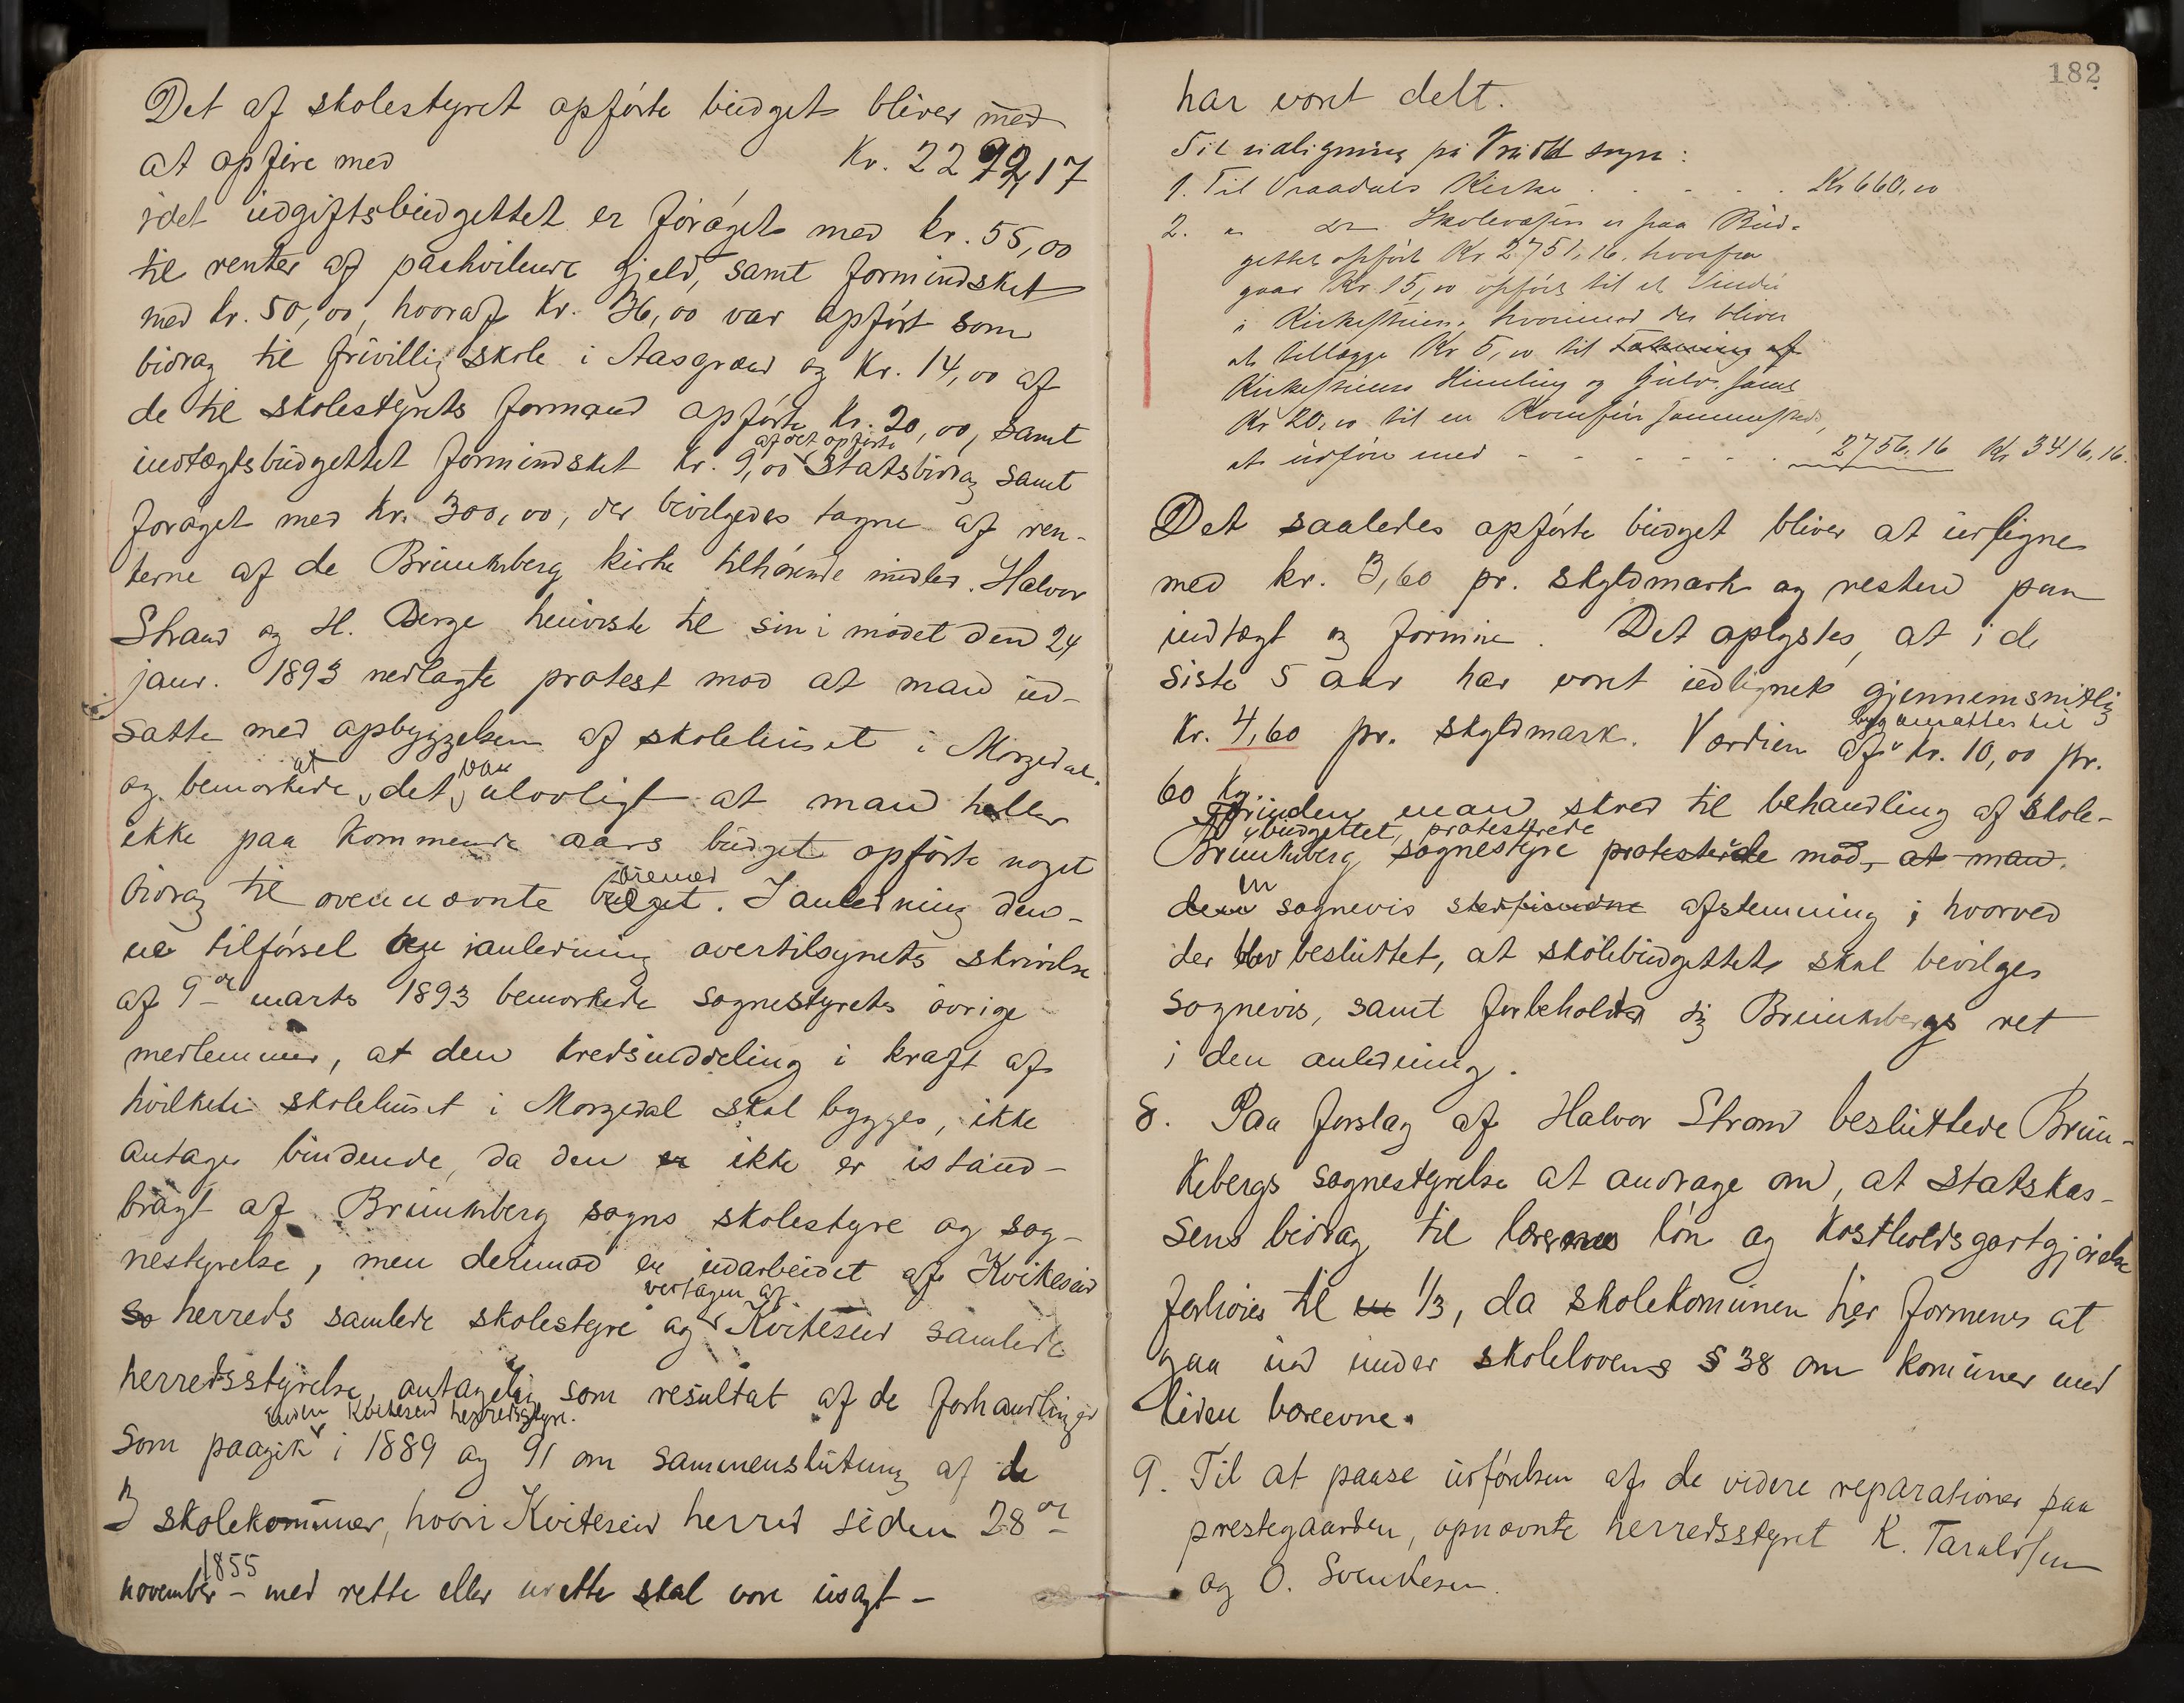 Det af skolestyret opførte budget bliver med
at opføre med Kr. 2292,17
idet udgiftsbudgettet er forøget med kr. 55,00
til renter af paahvilende gjeld, samt formindsket
med kr. 50,00, hvoraf kr. 36,00 var opført som
bidrag til frivillig skole i Aasgrend og kr. 14,00 af
de til skolestyrets formand opførte kr. 20,00, samt
indtægtsbudgettet formindsket kr. 9,00 af det opførte Statsbidrag samt
forøget med kr. 300,00, der bevilgedes tagne af ren-
terne af de Brunkeberg kirke tilhørende midler. Halvor
Strand og H. Berge henviste til sin i mødet den 24
janr. 1893 nedlagte protest mod at man ud-
satte med opbyggelsen af skolehuset i Morgedal
og bemærkede, at det var ulovligt at man heller
ikke paa kommende aars budget opførte noget
bidrag til ovennævnte øiemed. I anledning den-
ne tilførsel og i anledning overtilsynets skrivelse
af 9de marts 1893 bemærkede sognestyrets øvrige
medlemmer, at den kredsinddeling i kraft af
hvilken skolehuset i Morgedal skal bygges, ikke
antages bindende, da den er ikke er istand-
bragt af Brunkeberg sogns skolestyre og sog-
nestyrelse, men derimod er udarbeidet af Kviteseid
So herreds samlede skolestyre og vedtagen af Kviteseid samlede
herredsstyrelse, antagelig som resultat af de forhandlinger
som paagik inden Kviteseid herredsstyre i 1889 og 91 om sammenslutning af de
3 skolekommuner, hvori Kviteseid herred siden 28de
november 1855 – med rette eller urette skal være usagt –
182
har været delt.
Til udligning på Vrådal sogn:
1. Til Vraadals Kirke . . . . . Kr 660,00
2. " do Skolevæsen er paa Bud-
gettet opført Kr 2751,16, hvorfra
gaar Kr. 15,00 opført til et Vindu
i Kirkestuen, hvorimod der bliver
at tillægge Kr 5,00 til
Kirkestuens Himling og Gulv samt
Kr 20,00 til en Komfur sammesteds,
at udføre med - - - - - 2756,16 Kr 3416,16.
Det saaledes opførte budget bliver at udligne
med kr. 3,60 pr. skyldmark og resten paa
indtægt og formue. Det oplystes, at i de
siste 5 aar har været udlignet gjennemsnitlig
kr. 4,60 pr. skyldmark. Værdien af byg ansattes til kr. 10,00 pr.
60 kg.
Forinden man skred til behandling af skole-
budgettet, protesterede
Brunkeberg sognestyre protesterede mod, at man
den en sognevis stedfindne afstemning, hvorved
der blev besluttet, at skolebudgettet skal bevilges
sognevis, samt forbeholdt sig Brunkebergs ret
i den anledning.
8. Paa forslag af Halvor Strand besluttede Brun-
kebergs sognestyrelse at andrage om, at statskas-
sens bidrag til lærernes løn og kostholdsgodtgjørelse
forhøies til en 1/3, da skolekomunen her formenes at
gaa ind under skolelovens § 38 om komuner med
liden bæreevne.
9. Til at paase udførelsen af de videre reparationer paa
prestegaarden, opnævnte herredsstyret K. Taraldsen
og O. Svendsen.